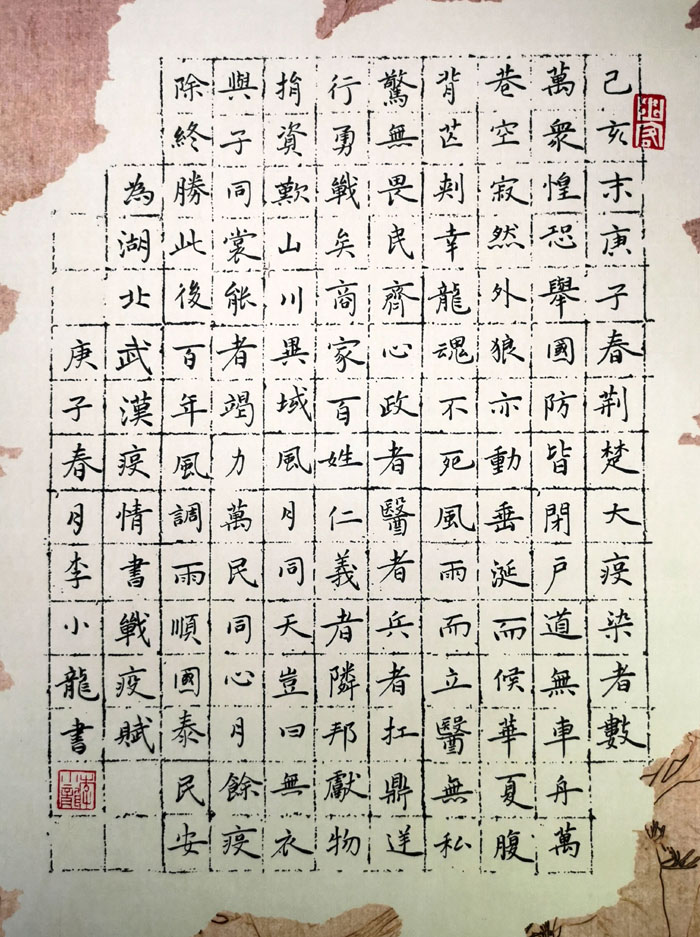 己亥末庚子春荆楚大疫染者數
萬衆惶恐舉國防皆閉戶道無車舟萬
巷空寂然外狼亦動垂涎而候華夏腹
背芒刾幸龍魂不死風雨而立醫無私
驚無畏民齊心政者醫者兵者扛鼎逆
行勇戰矣商家百姓仁義者隣邦獻物
捐資歎山川異域風月同天豈曰無衣
與子同裳能者竭力萬民同心月餘疫
除終勝此後百年風調雨順國泰民安
為湖北武漢疫情書戰疫賦
庚子春月李小龍書